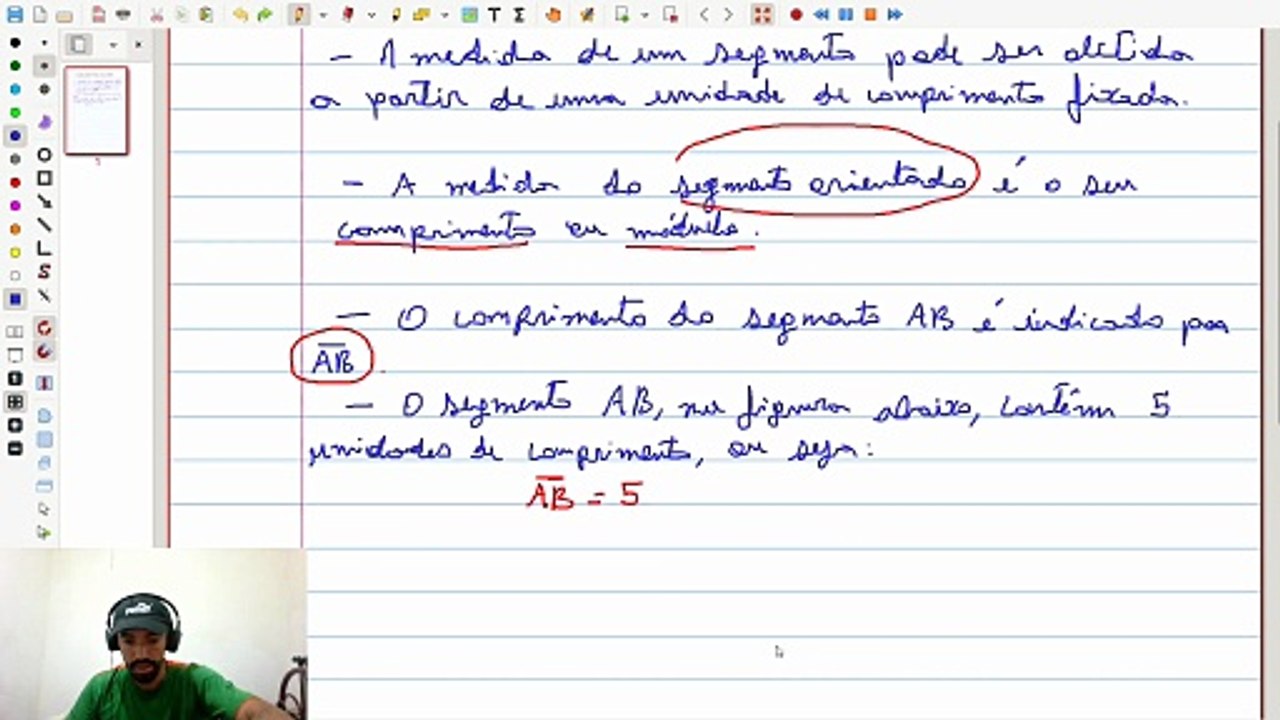 - A medida de um segmento pode ser obtida
a partir de uma unidade de comprimento fixada.
- A medida do segmento orientado é o seu
comprimento ou módulo.
- O comprimento do segmento AB é indicado por
A̅B̅.
- O segmento AB, na figura abaixo, contém 5
unidades de comprimento, ou seja:
A̅B̅ = 5